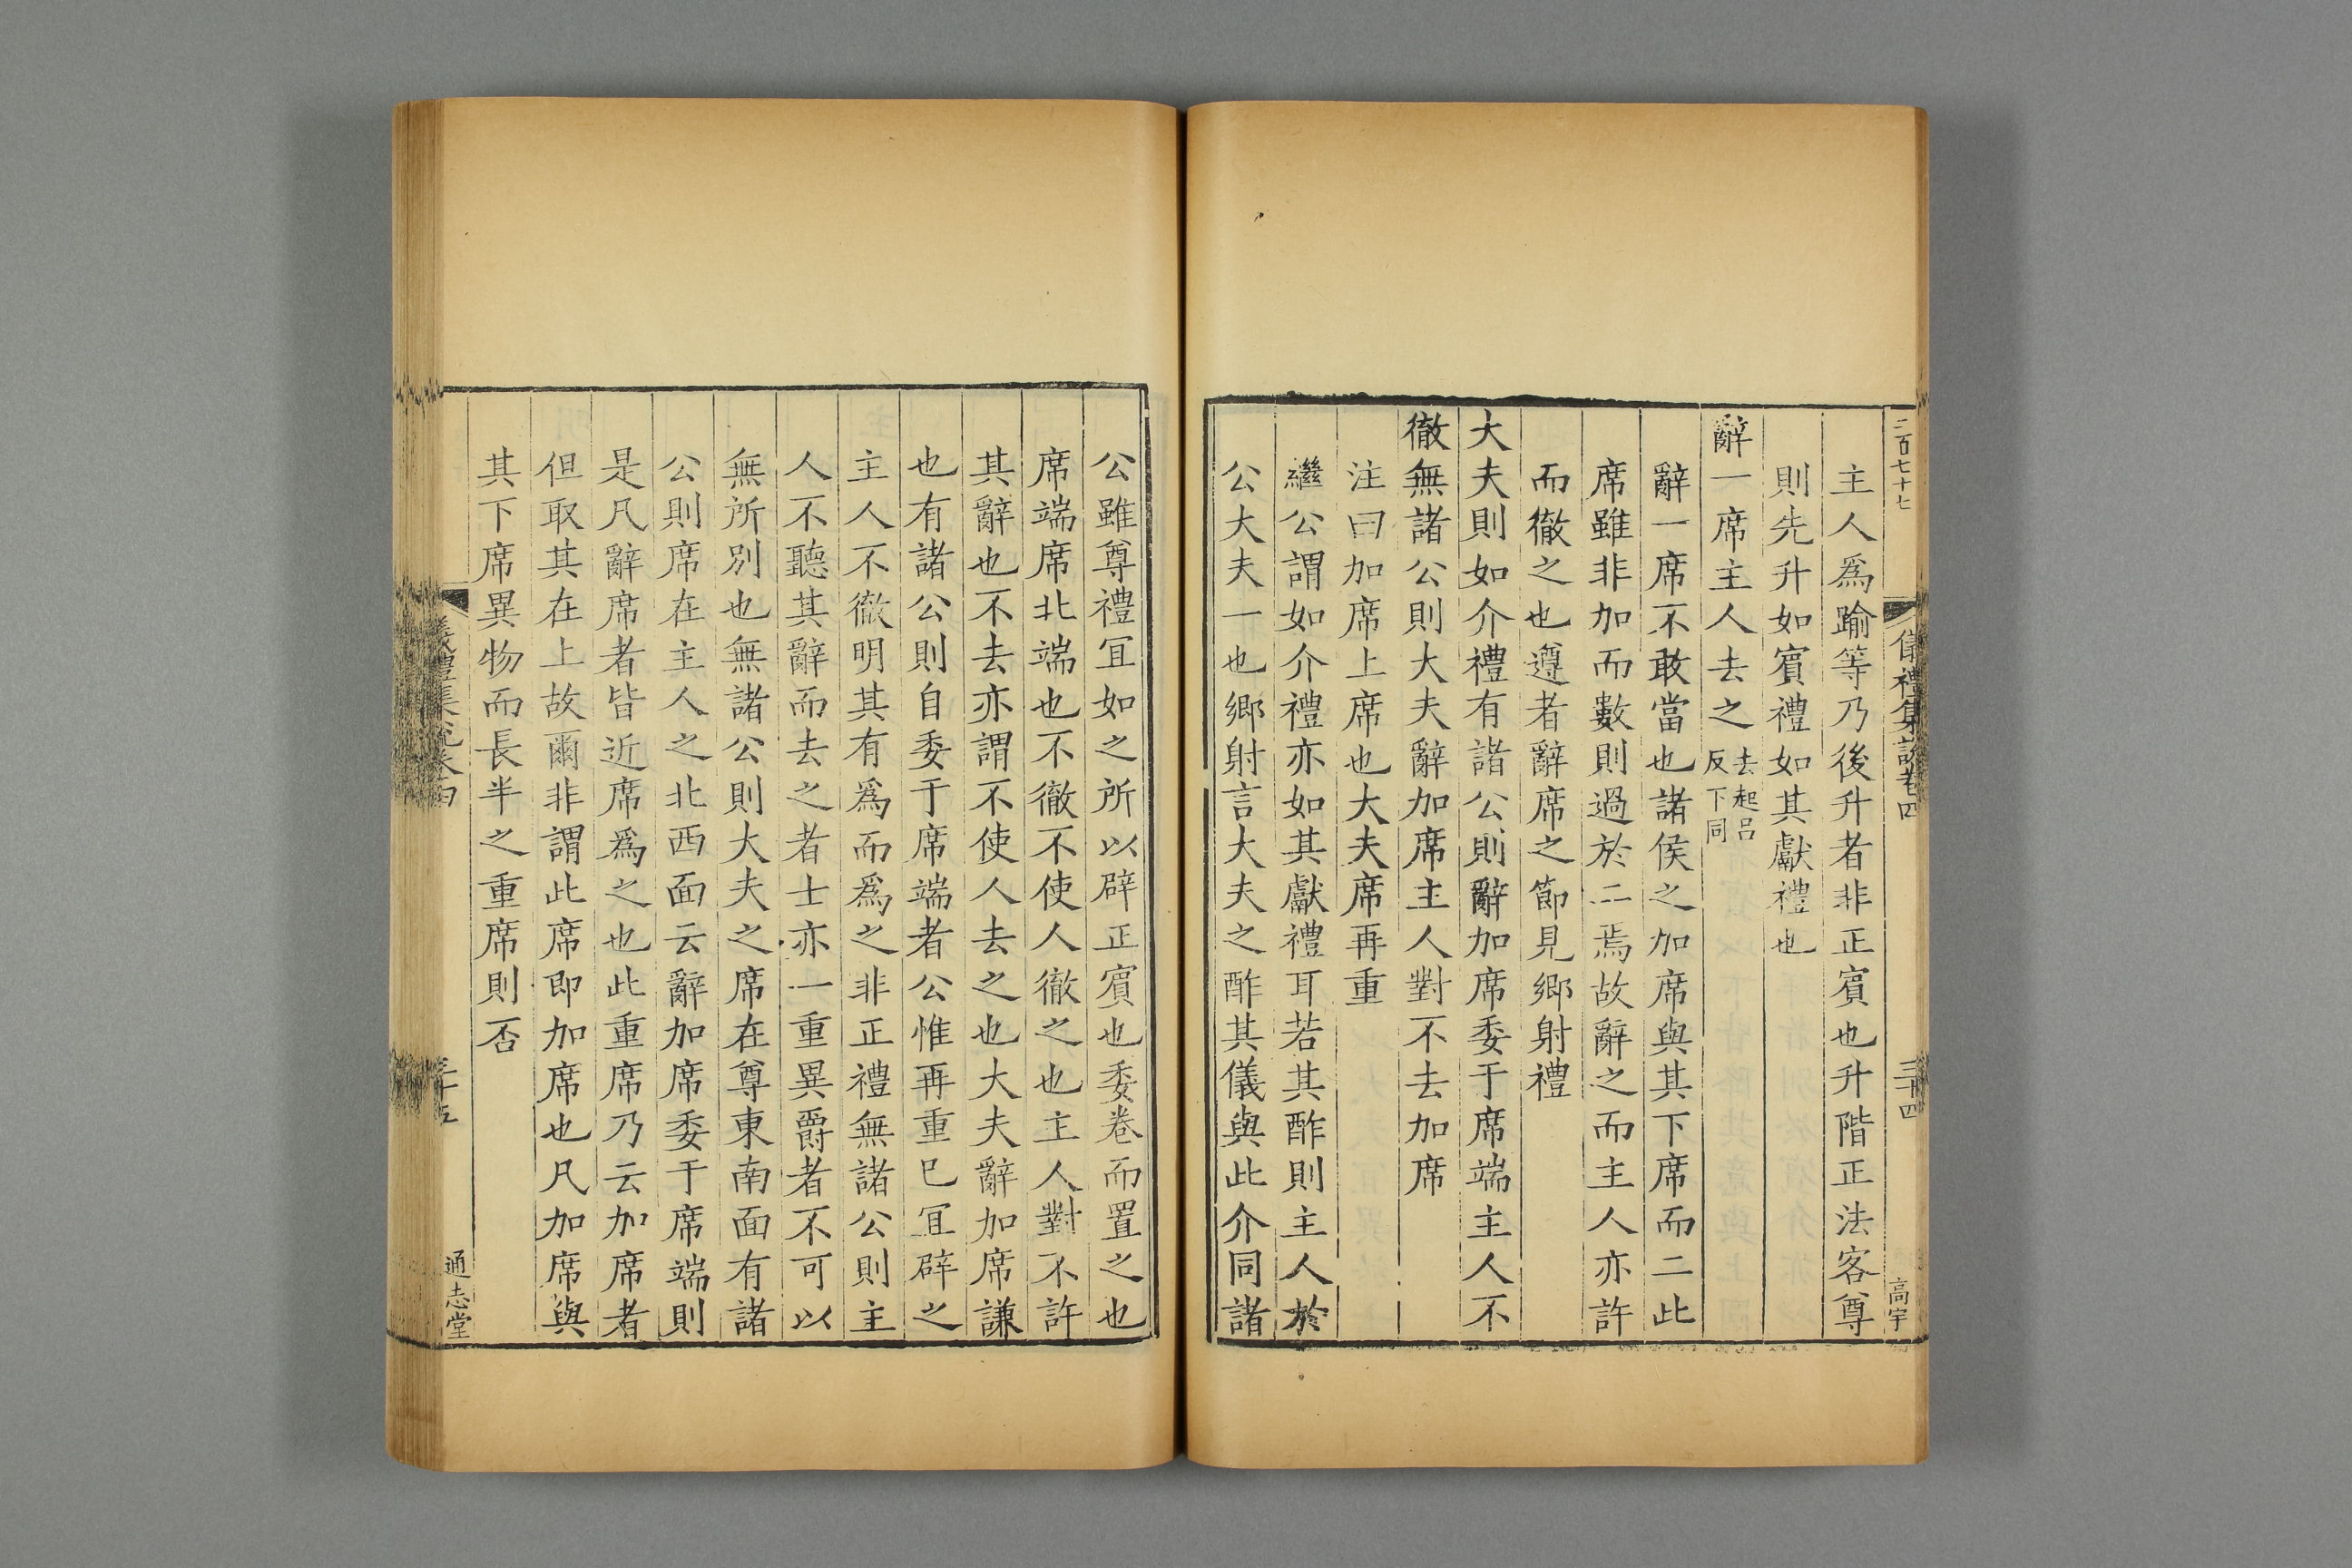 二百七十七
儀禮集說卷四
三十四
高宇
主人爲踰等乃後升者非正賓也升階正法客尊
則先升如賓禮如其獻禮也
辭一席主人去之去起呂反下同
辭一席不敢當也諸侯之加席與其下席而二此
席雖非加而數則過於二焉故辭之而主人亦許
而徹之也遵者辭席之節見鄉射禮
大夫則如介禮有諸公則辭加席委于席端主人不
徹無諸公則大夫辭加席主人對不去加席
注曰加席上席也大夫席再重
繼公謂如介禮亦如其獻禮耳若其酢則主人於
公大夫一也鄉射言大夫之酢其儀與此介同諸
公雖尊禮宜如之所以辟正賓也委卷而置之也
席端席北端也不徹不使人徹之也主人對不許
其辭也不去亦謂不使人去之也大夫辭加席謙
也有諸公則自委于席端者公惟再重已宜辟之
主人不徹明其有爲而爲之非正禮無諸公則主
人不聽其辭而去之者士亦一重異爵者不可以
無所別也無諸公則大夫之席在尊東南面有諸
公則席在主人之北西面云辭加席委于席端則
是凡辭席者皆近席爲之也此重席乃云加席者
但取其在上故爾非謂此席即加席也凡加席與
其下席異物而長半之重席則否
儀禮集說卷四
三十五
通志堂